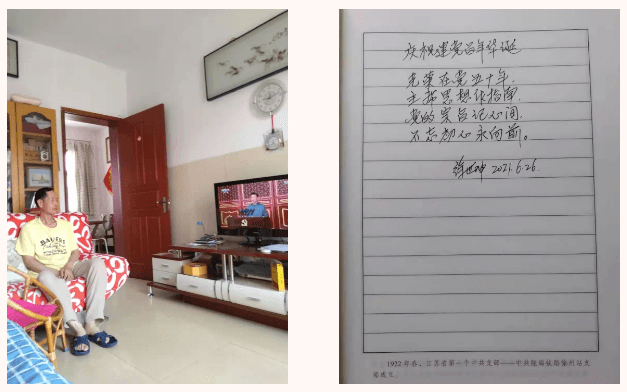 庆祝建党百年华诞
光荣在党五十年,
思想作指南,
党的宗旨记心间,
不忘初心永向前。
2021.6.26
1922年春,江苏省第一个中共支部——中共陇海铁路徐州站支
部成立。